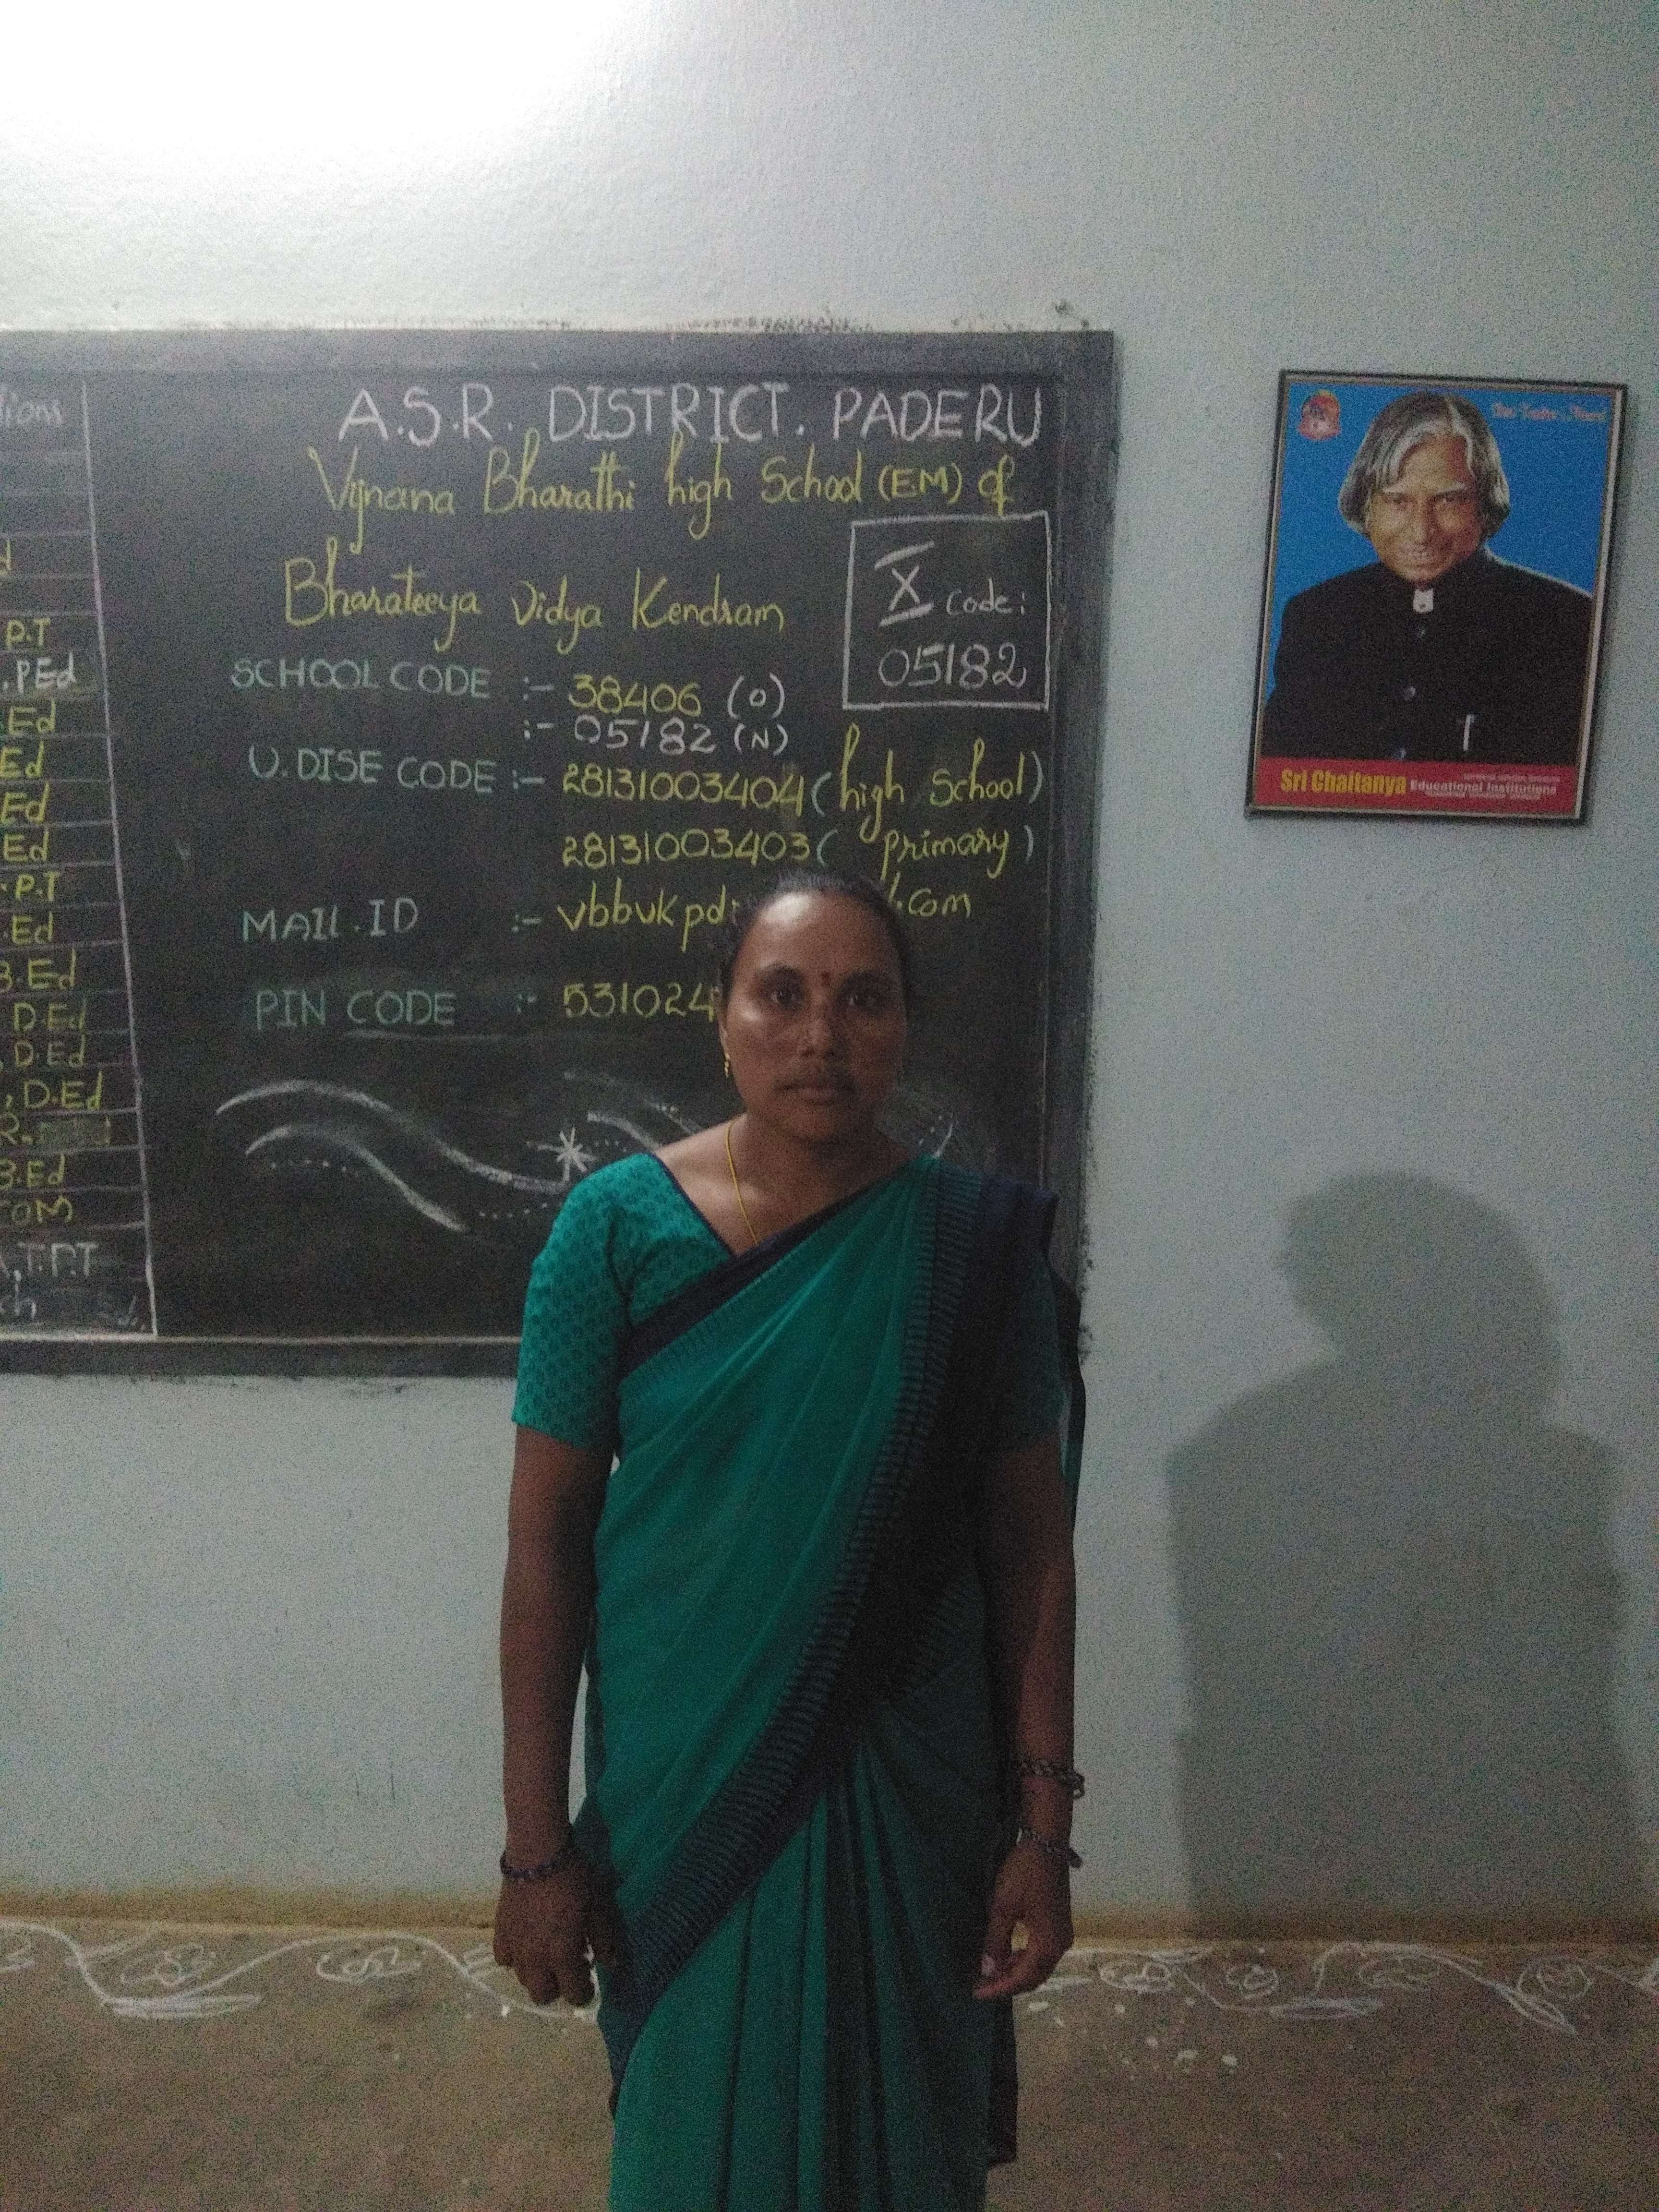 A.S.R. DISTRICT. PADERU
Vijnana Bharathi high School (EM) of
Bharateeya Vidya Kendram
X Code:
05182
SCHOOL CODE :- 38406 (O)
:- 05182 (N)
U.DISE CODE :- 28131003404 (high School)
28131003403 (primary)
MAIL.ID :- vbbvkpd
.com
PIN CODE :- 531024
P.T
.PEd
Ed
Ed
Ed
Ed
.P.T
.Ed
B.Ed
D.Ed
, D.Ed
, D.Ed
R.
B.Ed
COM
, T.P.T
Sri Chaitanya Educational Institutions